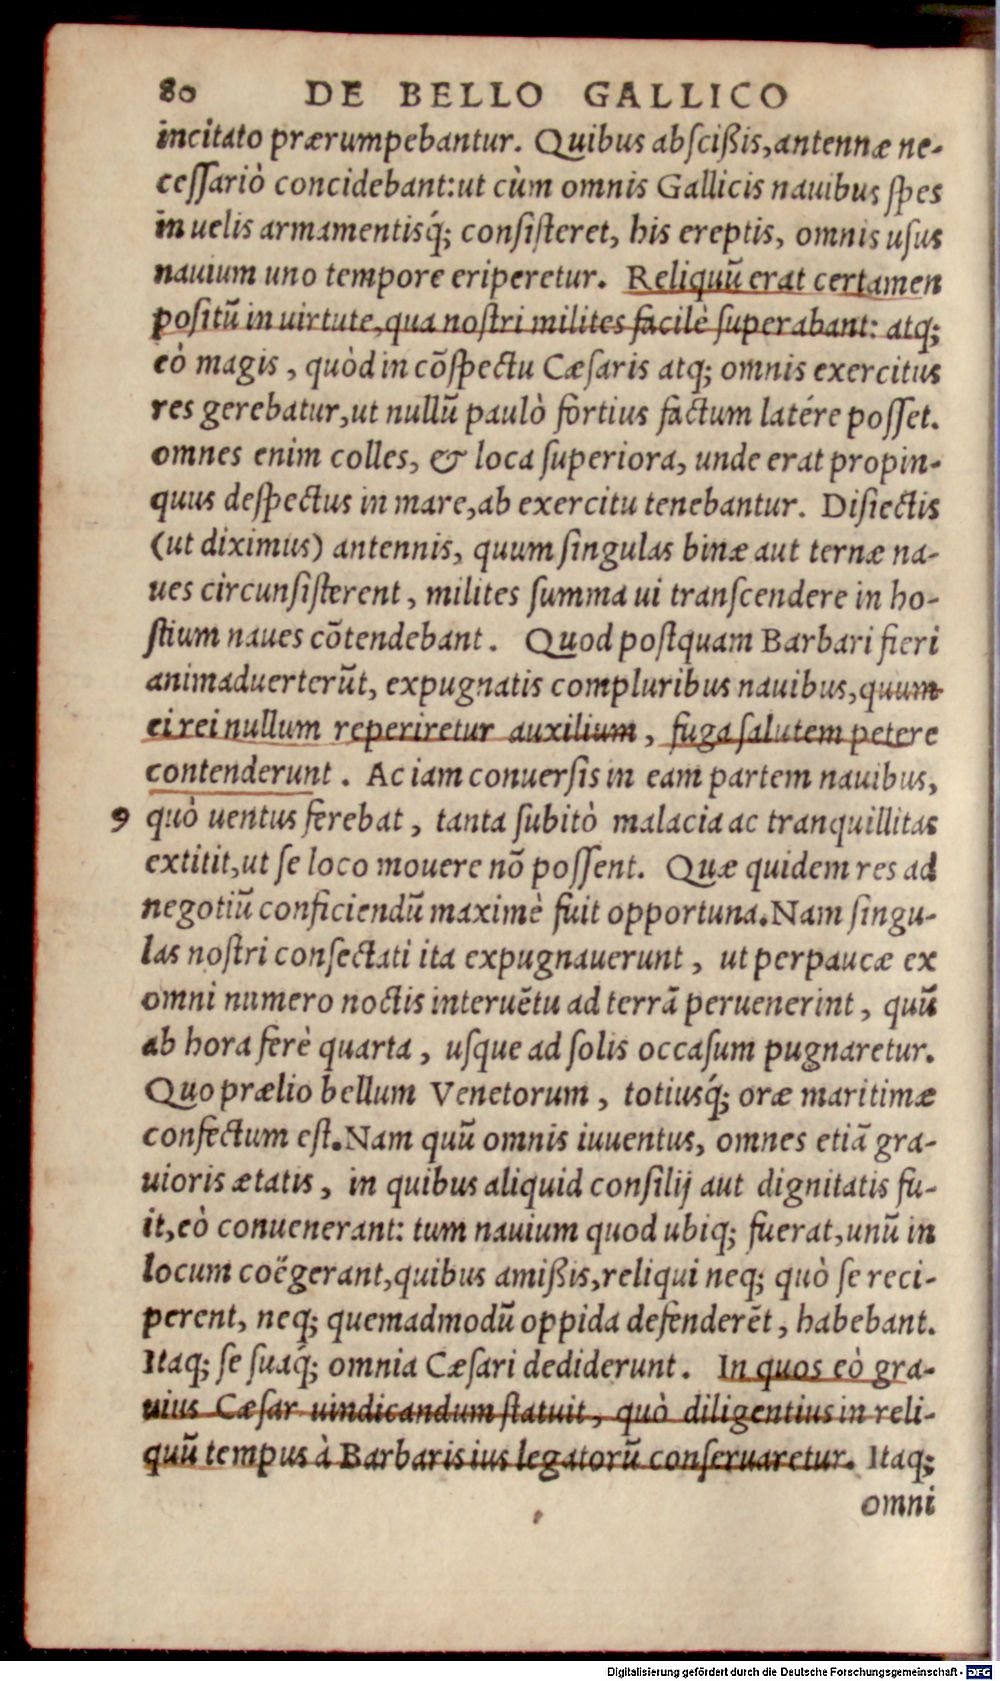 80 DE BELLO GALLICO
incitato prærumpebantur. Quibus abſcißis, antennæ ne-
ceſſariò concidebant: ut cùm omnis Gallicis nauibus ſpes
in uelis armamentisq́; conſiſteret, his ereptis, omnis uſus
nauium uno tempore eriperetur. Reliquũ erat certamen
poſitũ in uirtute, qua noſtri milites facilè ſuperabant: atq;
eò magis, quòd in cõſpectu Cæſaris atq; omnis exercitus
res gerebatur, ut nullũ paulò fortius factum latére poſſet.
omnes enim colles, & loca ſuperiora, unde erat propin-
quus deſpectus in mare, ab exercitu tenebantur. Diſiectis
(ut diximus) antennis, quum ſingulas binæ aut ternæ na-
ues circunſiſterent, milites ſumma ui tranſcendere in ho-
ſtium naues cõtendebant. Quod poſtquam Barbari fieri
animaduerterũt, expugnatis compluribus nauibus, quum
ei rei nullum reperiretur auxilium, fuga ſalutem petere
contenderunt. Ac iam conuerſis in eam partem nauibus,
9 quò uentus ferebat, tanta ſubitò malacia ac tranquillitas
extitit, ut ſe loco mouere nõ poſſent. Quæ quidem res ad
negotiũ conficiendũ maximè fuit opportuna. Nam ſingu-
las noſtri conſectati ita expugnauerunt, ut perpaucæ ex
omni numero noctis interuẽtu ad terrã peruenerint, quũ
ab hora ferè quarta, uſque ad ſolis occaſum pugnaretur.
Quo prælio bellum Venetorum, totiusq́; oræ maritimæ
confectum eſt. Nam quũ omnis iuuentus, omnes etiã gra-
uioris ætatis, in quibus aliquid conſilij aut dignitatis fu-
it, eò conuenerant: tum nauium quod ubiq; fuerat, unũ in
locum coëgerant, quibus amißis, reliqui neq; quò ſe reci-
perent, neq; quemadmodũ oppida defenderẽt, habebant.
Itaq; ſe ſuaq́; omnia Cæſari dediderunt. In quos eò gra-
uius Cæſar uindicandum ſtatuit, quò diligentius in reli-
quũ tempus à Barbaris ius legatorũ conſeruaretur. Itaq;
omni
Digitalisierung gefördert durch die Deutsche Forschungsgemeinschaft - DFG